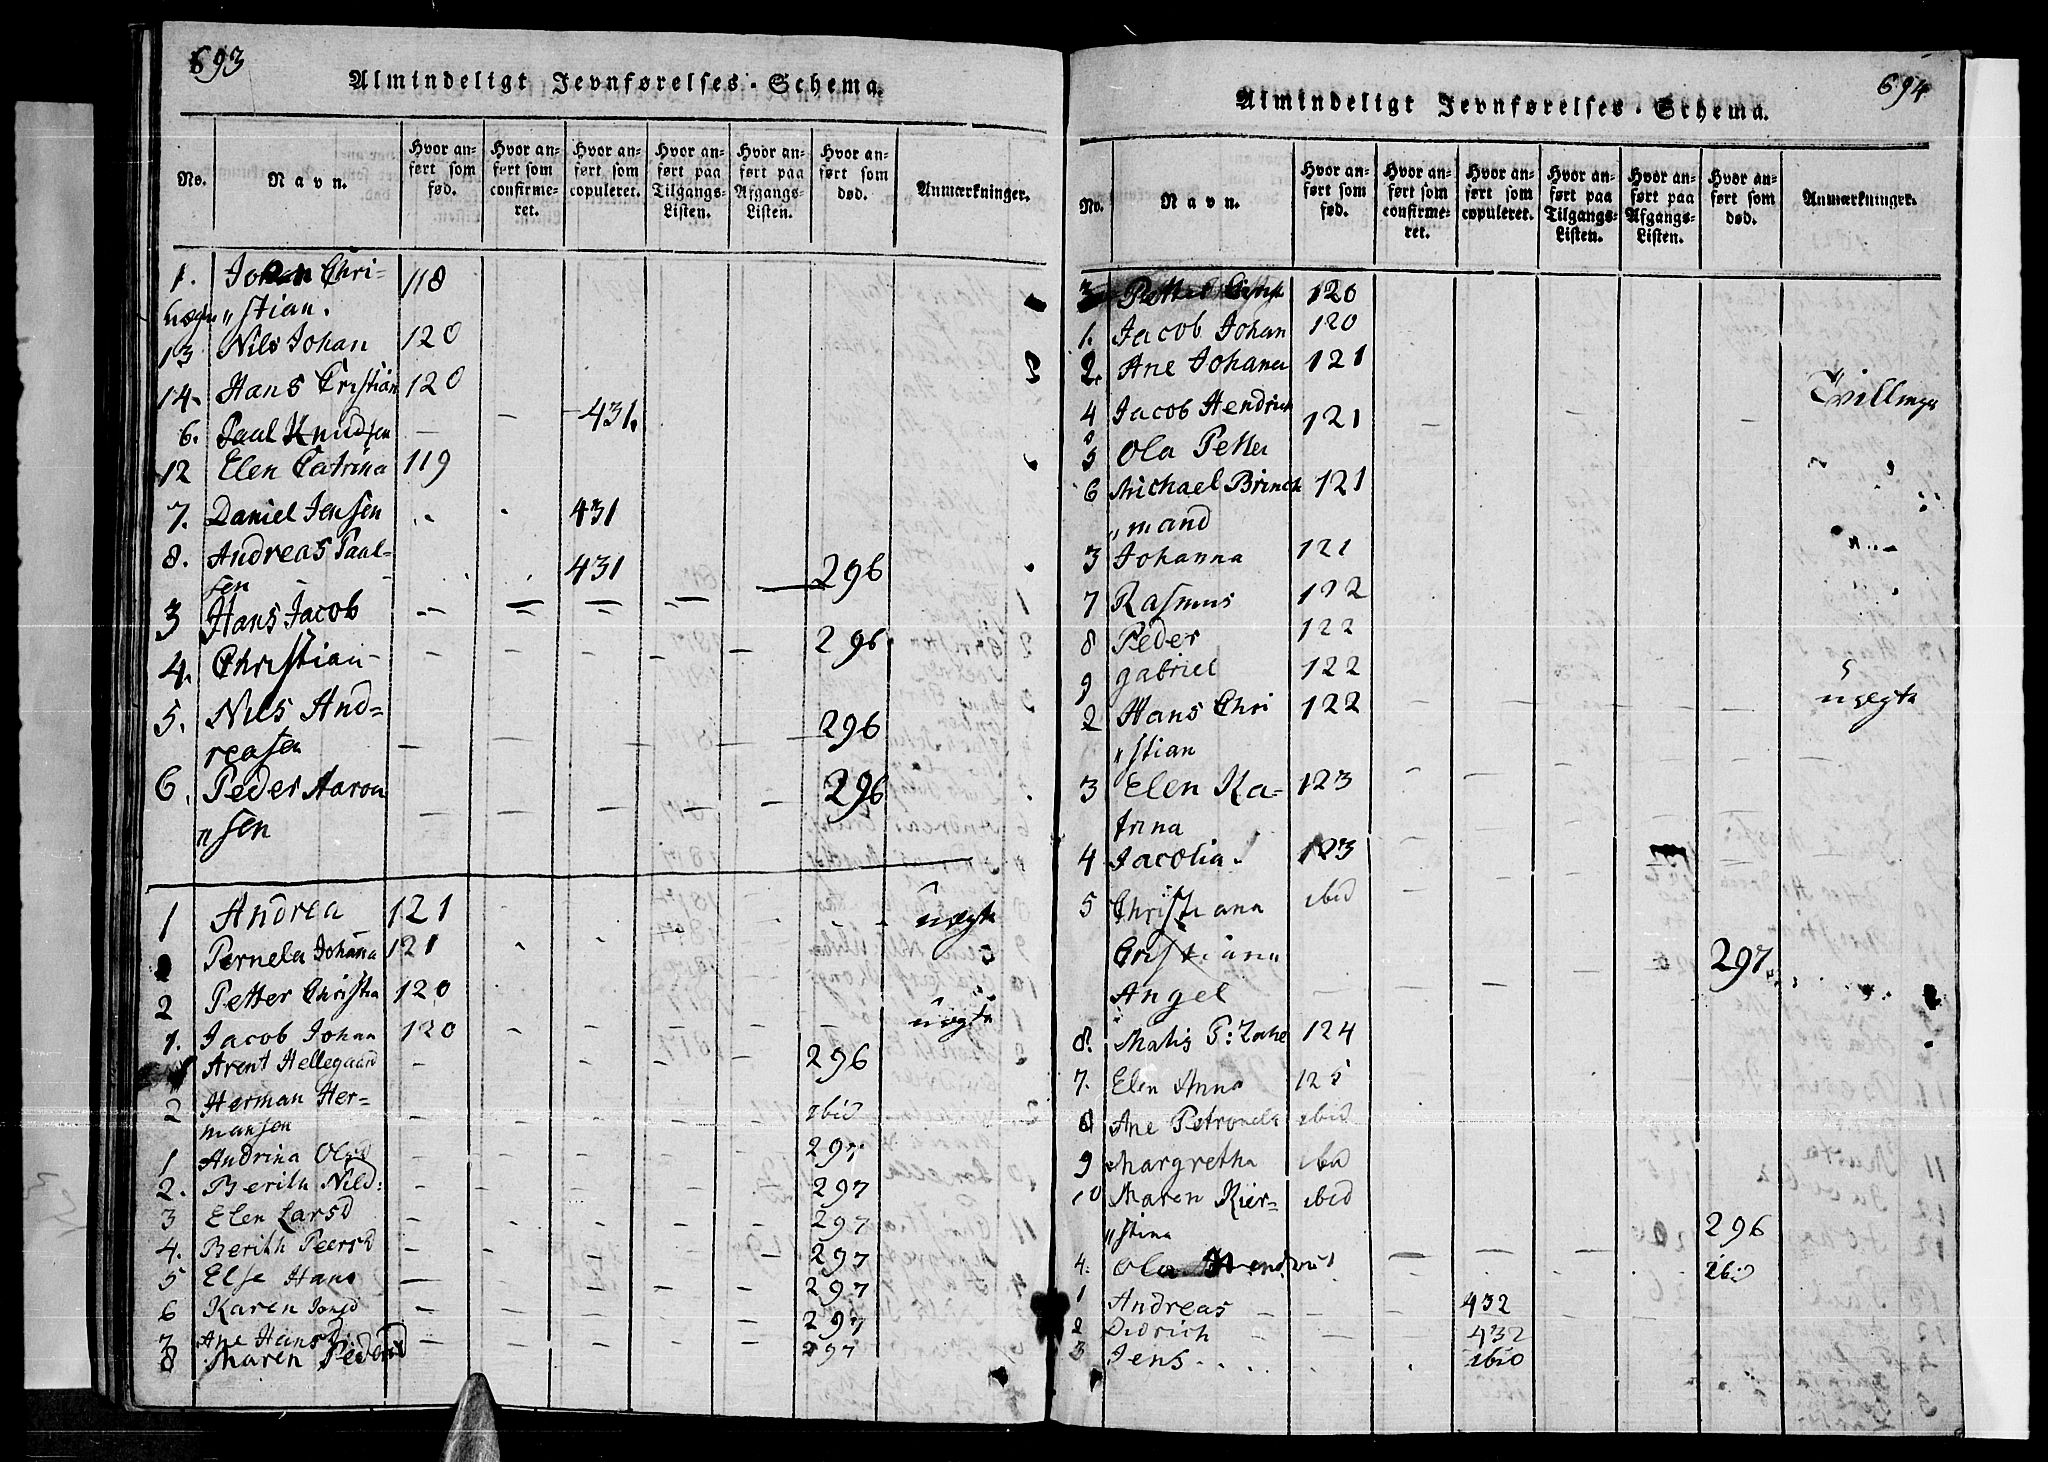 693
Almindeligt Jevnførelses-Schema.
No.
Navn.
Hvor anført som fød.
Hvor anført som confirmeret.
Hvor anført som copuleret.
Hvor anført paa Tilgangs-Listen.
Hvor anført paa Afgangs-Listen.
Hvor anført som død.
Anmærkninger.
1. Johan Chri- 118
uægte „stian.
13 Nils Johan 120
14. Hans Cristian 120
6. Paal Knudsen — – 431.
12 Elen Catrina 119
7. Daniel Jensen 431
8. Andreas Paal- 431
sen
3 Hans Jacob — — — — — 296
4. Christian — — — — — 296.
5. Nils And=
reasen — — — — — 296
6. Peder Aaron — — — — — 296
„sen
1 Andrea 121 uægte
Pernela Johana 121
2 Petter Christia 120
1. Jacob Johan 120 uægte
1 Arent Hellegaard 296
2 Herman Her= ibid
mansen
1 Andrina Olsd 297
2. Berith Nilsd: 297
3 Elen Larsd 297
4. Berith Peersd 297
5 Else Hans 297
6 Karen Jonsd 297
7 Ane Hansd 297
8 Maren Pedersd
694
Almindeligt Jevnførelses-Schema.
No.
Navn.
Hvor anført som fød.
Hvor anført som confirmeret.
Hvor anført som copuleret.
Hvor anført paa Tilgangs-Listen.
Hvor anført paa Afgangs-Listen.
Hvor anført som død.
Anmærkninger.
3 Petter 120
1. Jacob Johan 120
2. Ane Johana 121
4 Jacob Hendrich 121 Tvillinger
5 Ola Petter
6 Michael Brinch 121
„mand
3 Johanna 121
7 Rasmus 122
8 Peder 122
9 gabriel 122
2 Hans Chri 122 uægte
„stian
3 Elen Ka= 123
trina
4 Jacobia. 123
5 Christiana ibid
Cristiana 297
Angel
8. Matis P: Zahe 124
7. Elen Anna 125
8 Ane Petronela ibid
9 Margretha ibid
10 Maren Kier= ibid
„stina 296
4. Ola ibid
1 Andreas 432
2 Didrich 432
3 Jens ibid